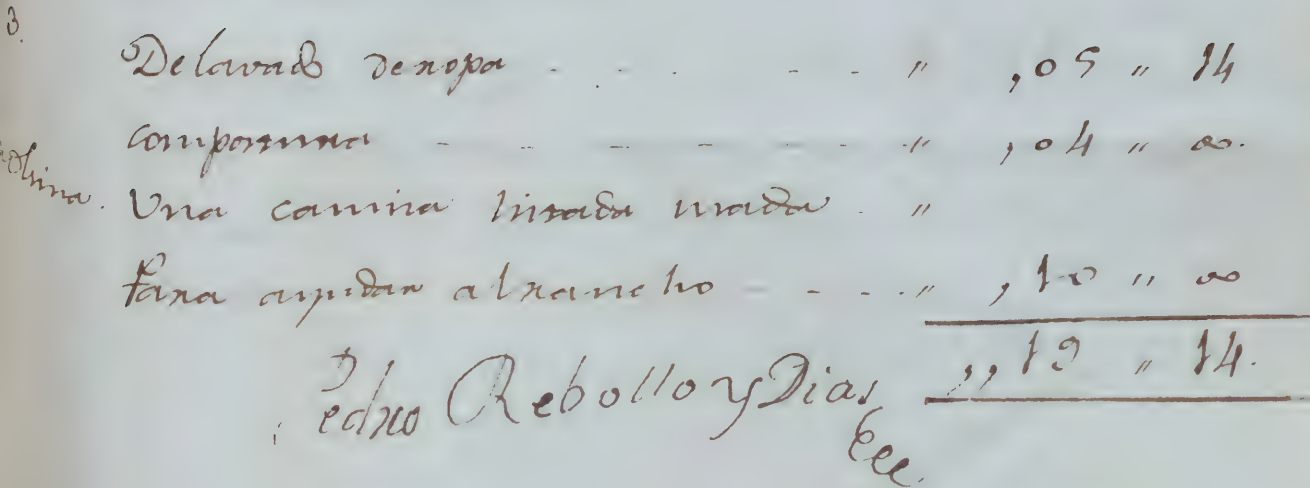 3.
De lavado de ropa - - - - - " ,05 " 14
compostura - - - - - - - " ,04 " 00.
Una camisa listada usada . "
Para ayudar al rancho - - - - " ,10 " 00
,,19 " 14.
Pedro Rebollo y Dias